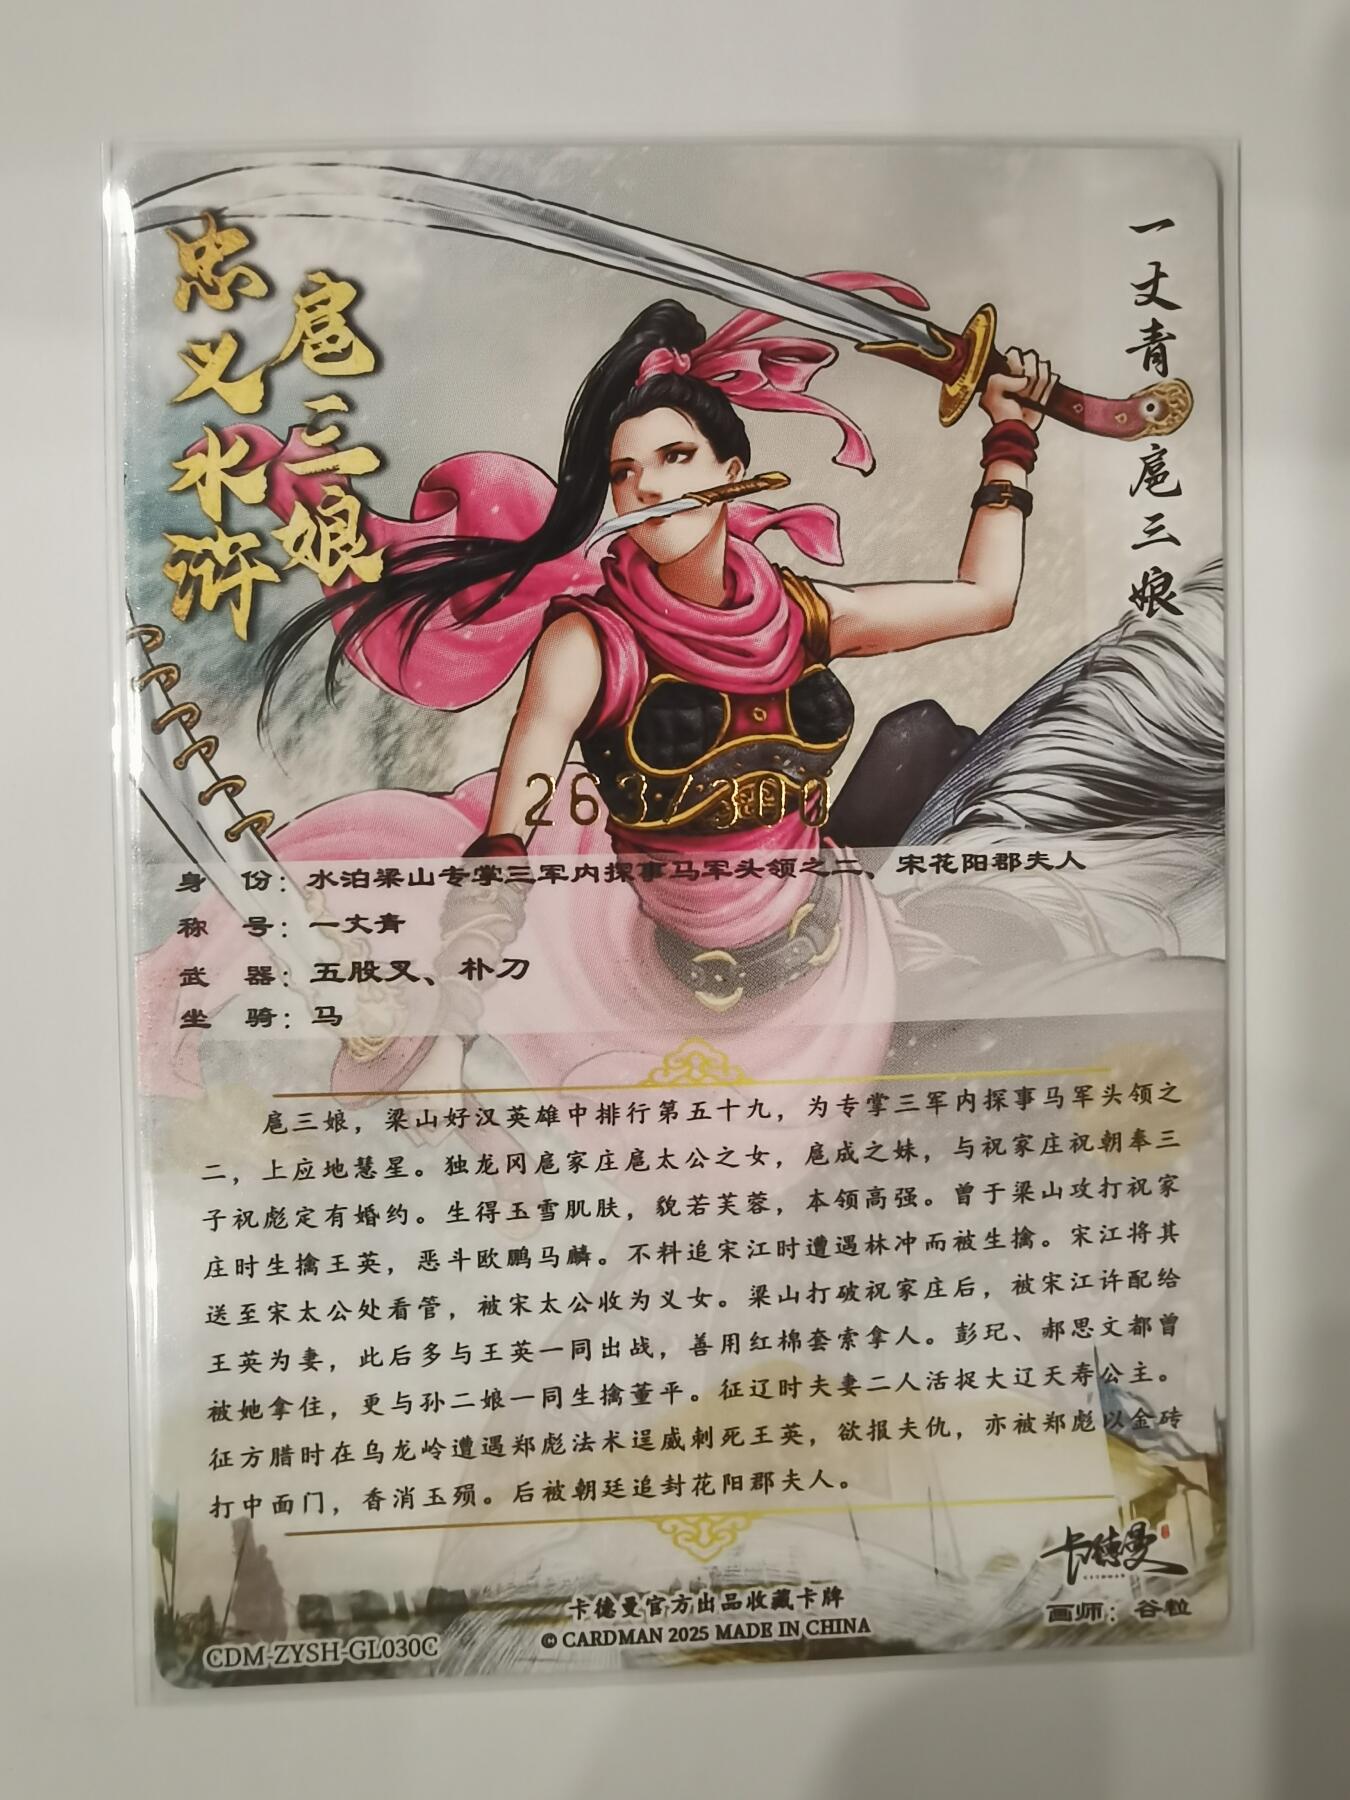 忠义水浒
扈三娘
一丈青 扈三娘
263/300
身 份：水泊梁山专掌三军内探事马军头领之二、宋花阳郡夫人
称 号：一丈青
武 器：五股叉、朴刀
坐 骑：马
扈三娘，梁山好汉英雄中排行第五十九，为专掌三军内探事马军头领之
二，上应地慧星。独龙冈扈家庄扈太公之女，扈成之妹，与祝家庄祝朝奉三
子祝彪定有婚约。生得玉雪肌肤，貌若芙蓉，本领高强。曾于梁山攻打祝家
庄时生擒王英，恶斗欧鹏马麟。不料追宋江时遭遇林冲而被生擒。宋江将其
送至宋太公处看管，被宋太公收为义女。梁山打破祝家庄后，被宋江许配给
王英为妻，此后多与王英一同出战，善用红棉套索拿人。彭玘、郝思文都曾
被她拿住，更与孙二娘一同生擒董平。征辽时夫妻二人活捉大辽天寿公主。
征方腊时在乌龙岭遭遇郑彪法术逞威刺死王英，欲报夫仇，亦被郑彪以金砖
打中面门，香消玉殒。后被朝廷追封花阳郡夫人。
卡德曼
CARDMAN
画师：谷粒
卡德曼官方出品收藏卡牌
© CARDMAN 2025 MADE IN CHINA
CDM-ZYSH-GL030C